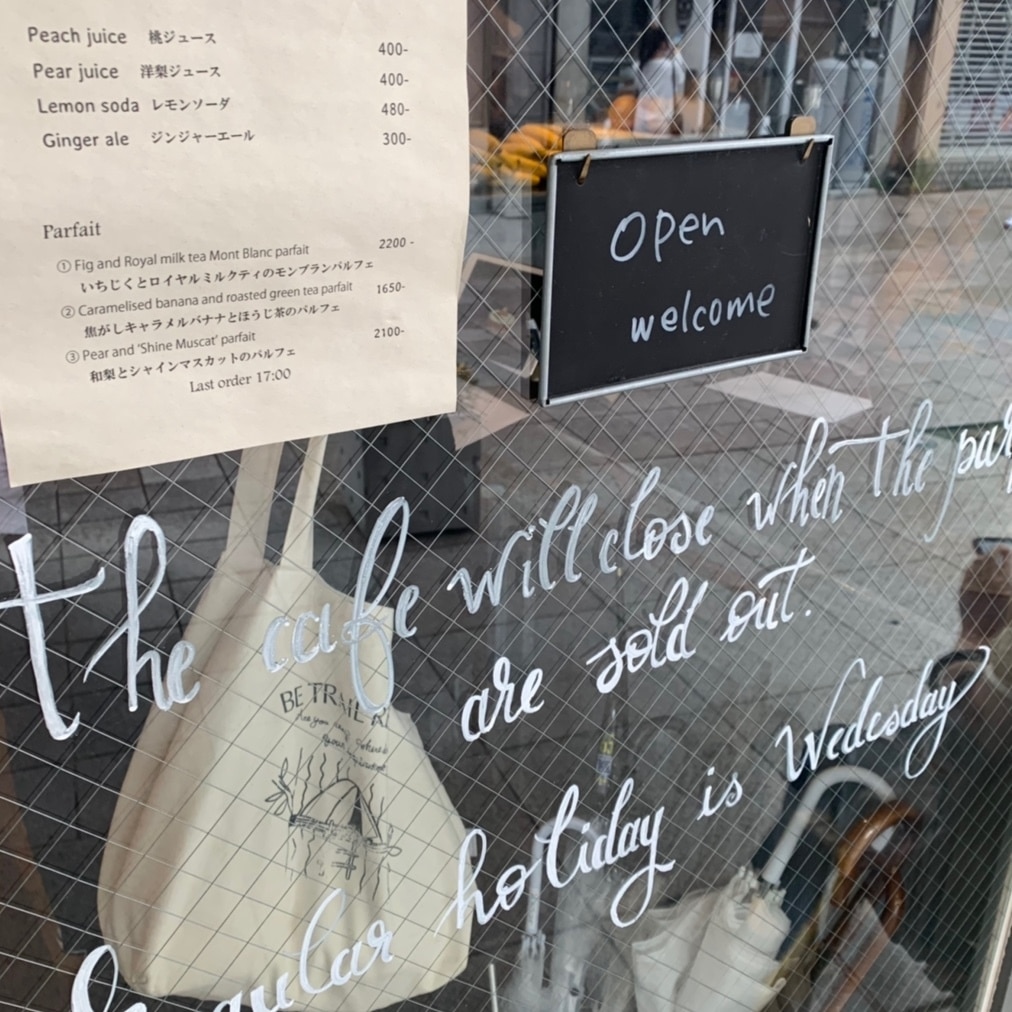 Peach juice 桃ジュース 400-
Pear juice 洋梨ジュース 400-
Lemon soda レモンソーダ 480-
Ginger ale ジンジャーエール 300-
Parfait
① Fig and Royal milk tea Mont Blanc parfait 2200 -
いちじくとロイヤルミルクティのモンブランパルフェ
② Caramelised banana and roasted green tea parfait 1650-
焦がしキャラメルバナナとほうじ茶のパルフェ
③ Pear and 'Shine Muscat' parfait 2100-
和梨とシャインマスカットのパルフェ
Last order 17:00
Open
welcome
the cafe will close when the par
are sold out.
Regular holiday is Wedesday
BE TRAIL